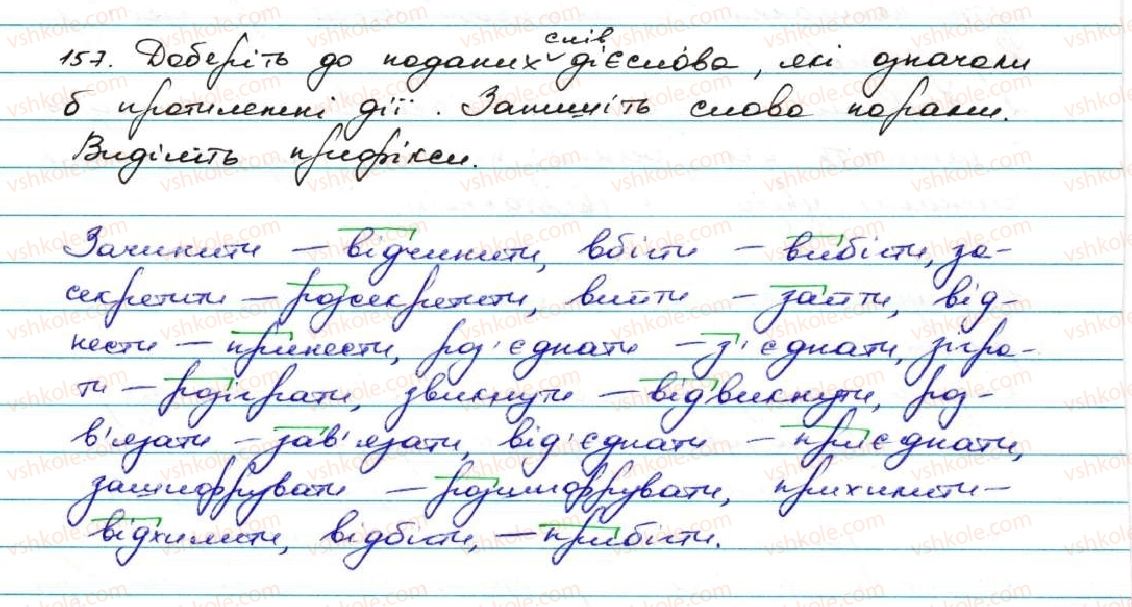 157. Доберіть до поданих слів дієслова, які означали
б протилежні дії. Запишіть слова парами.
Виділіть префікси.
Зачинити – відчинити, вбігти – вибігти, за-
секретити – розсекретити, вийти – зайти, від-
нести – принести, роз'єднати – з'єднати, зігра-
ти – розіграти, звикнути – відвикнути, роз-
в'язати – зав'язати, від'єднати – приєднати,
зашифрувати – розшифрувати, прихилити –
відхилити, відбігти, – прибігти.